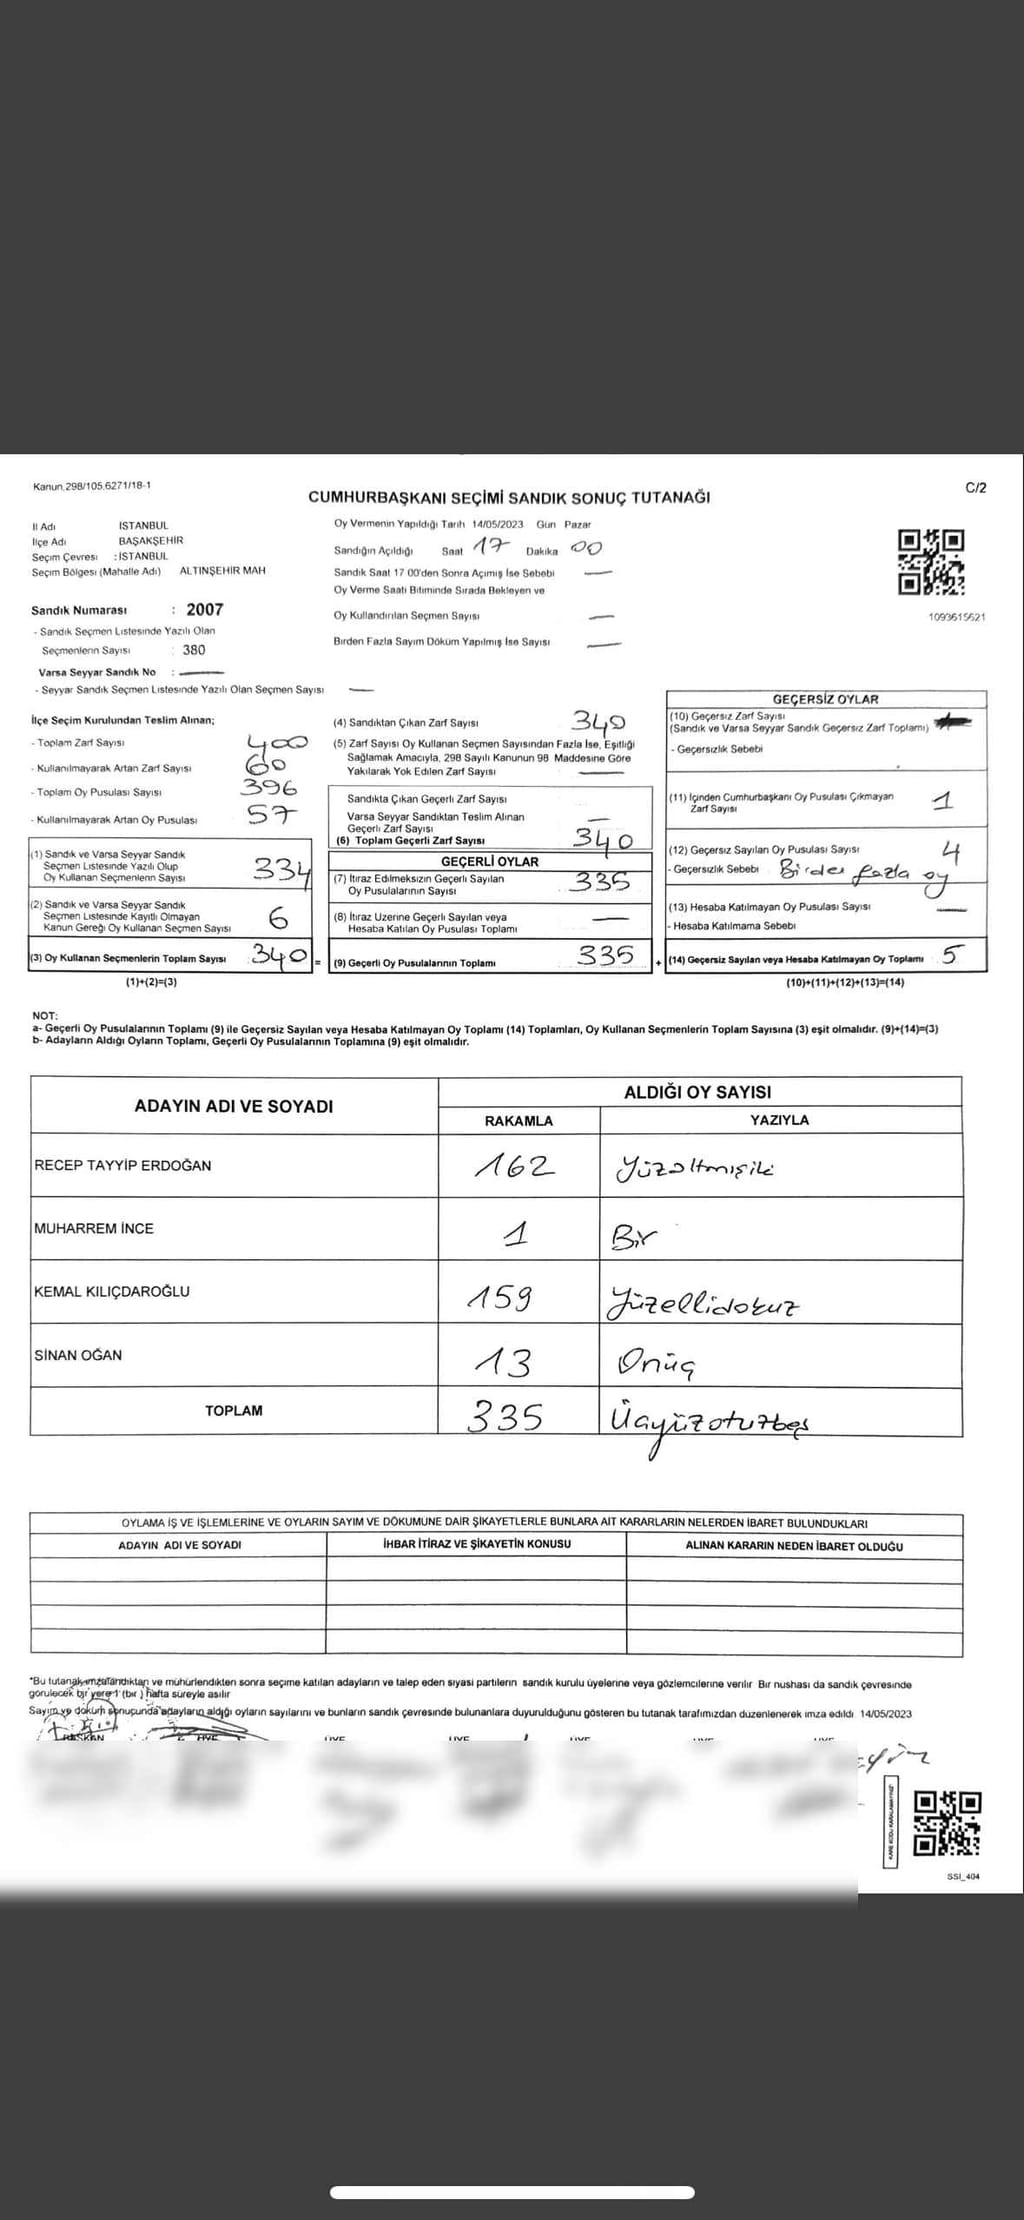 Kanun,298/105,6271/18-1
C/2
CUMHURBAŞKANI SEÇİMİ SANDIK SONUÇ TUTANAĞI
İl Adı İSTANBUL
İlçe Adı BAŞAKŞEHİR
Seçim Çevresi : İSTANBUL
Seçim Bölgesi (Mahalle Adı) ALTINŞEHİR MAH
Sandık Numarası : 2007
- Sandık Seçmen Listesinde Yazılı Olan
Seçmenlerin Sayısı : 380
Varsa Seyyar Sandık No : —
- Seyyar Sandık Seçmen Listesinde Yazılı Olan Seçmen Sayısı —
Oy Vermenin Yapıldığı Tarih 14/05/2023 Gün Pazar
Sandığın Açıldığı Saat 17 Dakika 00
Sandık Saat 17 00'den Sonra Açımış İse Sebebi —
Oy Verme Saati Bitiminde Sırada Bekleyen ve
Oy Kullandırılan Seçmen Sayısı —
Birden Fazla Sayım Döküm Yapılmış İse Sayısı —
1093615621
İlçe Seçim Kurulundan Teslim Alınan;
- Toplam Zarf Sayısı 400
- Kullanılmayarak Artan Zarf Sayısı 60
- Toplam Oy Pusulası Sayısı 396
- Kullanılmayarak Artan Oy Pusulası 57
(1) Sandık ve Varsa Seyyar Sandık
Seçmen Listesinde Yazılı Olup
Oy Kullanan Seçmenlerin Sayısı 334
(2) Sandık ve Varsa Seyyar Sandık
Seçmen Listesinde Kayıtlı Olmayan
Kanun Gereği Oy Kullanan Seçmen Sayısı 6
(3) Oy Kullanan Seçmenlerin Toplam Sayısı 340 =
(1)+(2)=(3)
(4) Sandıktan Çıkan Zarf Sayısı 340
(5) Zarf Sayısı Oy Kullanan Seçmen Sayısından Fazla İse, Eşitliği
Sağlamak Amacıyla, 298 Sayılı Kanunun 98 Maddesine Göre
Yakılarak Yok Edilen Zarf Sayısı —
Sandıkta Çıkan Geçerli Zarf Sayısı
Varsa Seyyar Sandıktan Teslim Alınan
Geçerli Zarf Sayısı —
(6) Toplam Geçerli Zarf Sayısı 340
GEÇERLİ OYLAR
(7) İtiraz Edilmeksizin Geçerli Sayılan
Oy Pusulalarının Sayısı 335
(8) İtiraz Üzerine Geçerli Sayılan veya
Hesaba Katılan Oy Pusulası Toplamı —
(9) Geçerli Oy Pusulalarının Toplamı 335 +
GEÇERSİZ OYLAR
(10) Geçersiz Zarf Sayısı
(Sandık ve Varsa Seyyar Sandık Geçersiz Zarf Toplamı)
- Geçersizlik Sebebi
(11) İçinden Cumhurbaşkanı Oy Pusulası Çıkmayan
Zarf Sayısı 1
(12) Geçersiz Sayılan Oy Pusulası Sayısı 4
- Geçersizlik Sebebi Birden fazla oy
(13) Hesaba Katılmayan Oy Pusulası Sayısı —
- Hesaba Katılmama Sebebi
(14) Geçersiz Sayılan veya Hesaba Katılmayan Oy Toplamı 5
(10)+(11)+(12)+(13)=(14)
NOT:
a- Geçerli Oy Pusulalarının Toplamı (9) ile Geçersiz Sayılan veya Hesaba Katılmayan Oy Toplamı (14) Toplamları, Oy Kullanan Seçmenlerin Toplam Sayısına (3) eşit olmalıdır. (9)+(14)=(3)
b- Adayların Aldığı Oyların Toplamı, Geçerli Oy Pusulalarının Toplamına (9) eşit olmalıdır.
ADAYIN ADI VE SOYADI
ALDIĞI OY SAYISI
RAKAMLA YAZIYLA
RECEP TAYYİP ERDOĞAN 162 Yüzaltmışiki
MUHARREM İNCE 1 Bir
KEMAL KILIÇDAROĞLU 159 Yüzellidokuz
SİNAN OĞAN 13 Onüç
TOPLAM 335 Üçyüzotuzbeş
OYLAMA İŞ VE İŞLEMLERİNE VE OYLARIN SAYIM VE DÖKÜMÜNE DAİR ŞİKAYETLERLE BUNLARA AİT KARARLARIN NELERDEN İBARET BULUNDUKLARI
ADAYIN ADI VE SOYADI İHBAR İTİRAZ VE ŞİKAYETİN KONUSU ALINAN KARARIN NEDEN İBARET OLDUĞU
*Bu tutanak imzalandıktan ve mühürlendikten sonra seçime katılan adayların ve talep eden siyasi partilerin sandık kurulu üyelerine veya gözlemcilerine verilir Bir nushası da sandık çevresinde
görülecek bir yere 1 (bir) hafta süreyle asılır
Sayım ve döküm sonucunda adayların aldığı oyların sayılarını ve bunların sandık çevresinde bulunanlara duyurulduğunu gösteren bu tutanak tarafımızdan düzenlenerek imza edildi 14/05/2023
BAŞKAN ÜYE ÜYE ÜYE ÜYE ÜYE ÜYE
KARE KODU KARALAMAYINIZ!
SSI_404